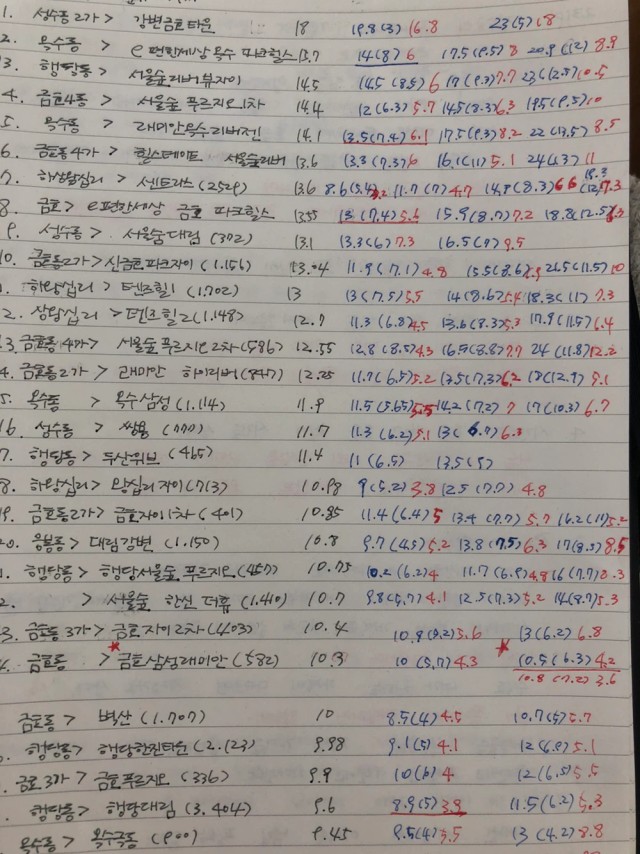 1. 성수동2가 > 강변금호타운 18 19.8(3) 16.8 23(5) 18
2. 옥수동 > e편한세상 옥수 파크힐스 13.7 14(8) 6 17.5(9.5) 8 20.9(12) 8.9
3. 행당동 > 서울숲리버뷰자이 14.5 14.5(8.5) 6 17(9.3) 7.7 23(12.5) 10.5
4. 금호4동 > 서울숲 푸르지오1차 14.4 12(6.3) 5.7 14.5(8.3) 6.3 19.5(9.5) 10
5. 옥수동 > 래미안옥수리버젠 14.1 13.5(7.4) 6.1 17.5(9.3) 8.2 22(13.5) 8.5
6. 금호동4가 > 힐스테이트 서울숲리버 13.6 13.3(7.3) 6 16.1(11) 5.1 24(13) 11
7. 하왕십리 > 센트라스(2529) 13.6 8.6(5.4) 3.2 11.7(7) 4.7 14.9(8.3) 6.6 19.3(12) 7.3
8. 금호 > e편한세상 금호 파크힐스 13.55 13(7.4) 5.6 15.9(8.7) 7.2 18.8(12.5)
9. 성수동 > 서울숲대림(302) 13.1 13.3(6) 7.3 16.5(7) 9.5
10. 금호동2가 > 신금호파크자이(1.156) 13.04 11.9(7.1) 4.8 15.5(8.6) 21.5(11.5) 10
하왕십리 > 텐즈힐1(1.702) 13 13(7.5) 5.5 14(8.6) 5.4 18.3(11) 7.3
2. 상왕십리 > 텐즈힐2(1.148) 12.7 11.3(6.8) 4.5 13.6(8.3) 5.3 17.9(11.5) 6.4
3. 금호동4가 > 서울숲푸르지오2차(586) 12.55 12.8(8.5) 4.3 16.5(8.8) 7.7 24(11.8) 12.2
4. 금호동2가 > 래미안 하이리버(847) 12.25 11.7(6.5) 5.2 13.5(7.3) 6.2 18(12.9) 5.1
5. 옥수동 > 옥수삼성(1.114) 11.9 11.5(5.65) 5.5 14.2(7.2) 7 17(10.3) 6.7
16. 성수동 > 쌍용(777) 11.7 11.3(6.2) 5.1 13(6.7) 6.3
7. 행당동 > 두산위브(465) 11.4 11(6.5) 13.5(9)
8. 하왕십리 > 왕십리자이(713) 10.98 9(5.2) 3.8 12.5(7.7) 4.8
19. 금호동2가 > 금호자이1차(401) 10.85 11.4(6.4) 5 13.4(7.7) 5.7 16.2(11) 5.2
20. 응봉동 > 대림강변(1.150) 10.8 9.7(4.5) 5.2 13.8(7.5) 6.3 17(8.5) 8.5
1. 행당동 > 행당서울숲 푸르지오(457) 10.75 10.2(6.2) 4 11.7(6.9) 4.8 16(7.7) 8.3
2. > 서울숲 한신 더휴(1.410) 10.7 9.8(5.7) 4.1 12.5(7.3) 5.2 14(8.7) 5.3
3. 금호동3가 > 금호자이2차(403) 10.4 10.8(5.2) 5.6 13(6.2) 6.8
4. 금호동 > 금호삼성래미안(582) 10.3 10(5.7) 4.3 10.5(6.3) 4.2
10.8(7.2) 3.6
금호동 > 벽산(1.707) 10 8.5(4) 4.5 10.7(5) 5.7
행당동 > 행당한진타운(2.123) 9.98 9.1(5) 4.1 12(6.9) 5.1
금호3가 > 금호푸르지오(336) 9.9 10(6) 4 12(6.5) 5.5
행당동 > 행당대림(3.404) 9.6 8.9(5) 3.9 11.5(6.2) 5.3
옥수동 > 옥수극동(900) 9.45 9.5(4) 5.5 13(4.2) 8.8